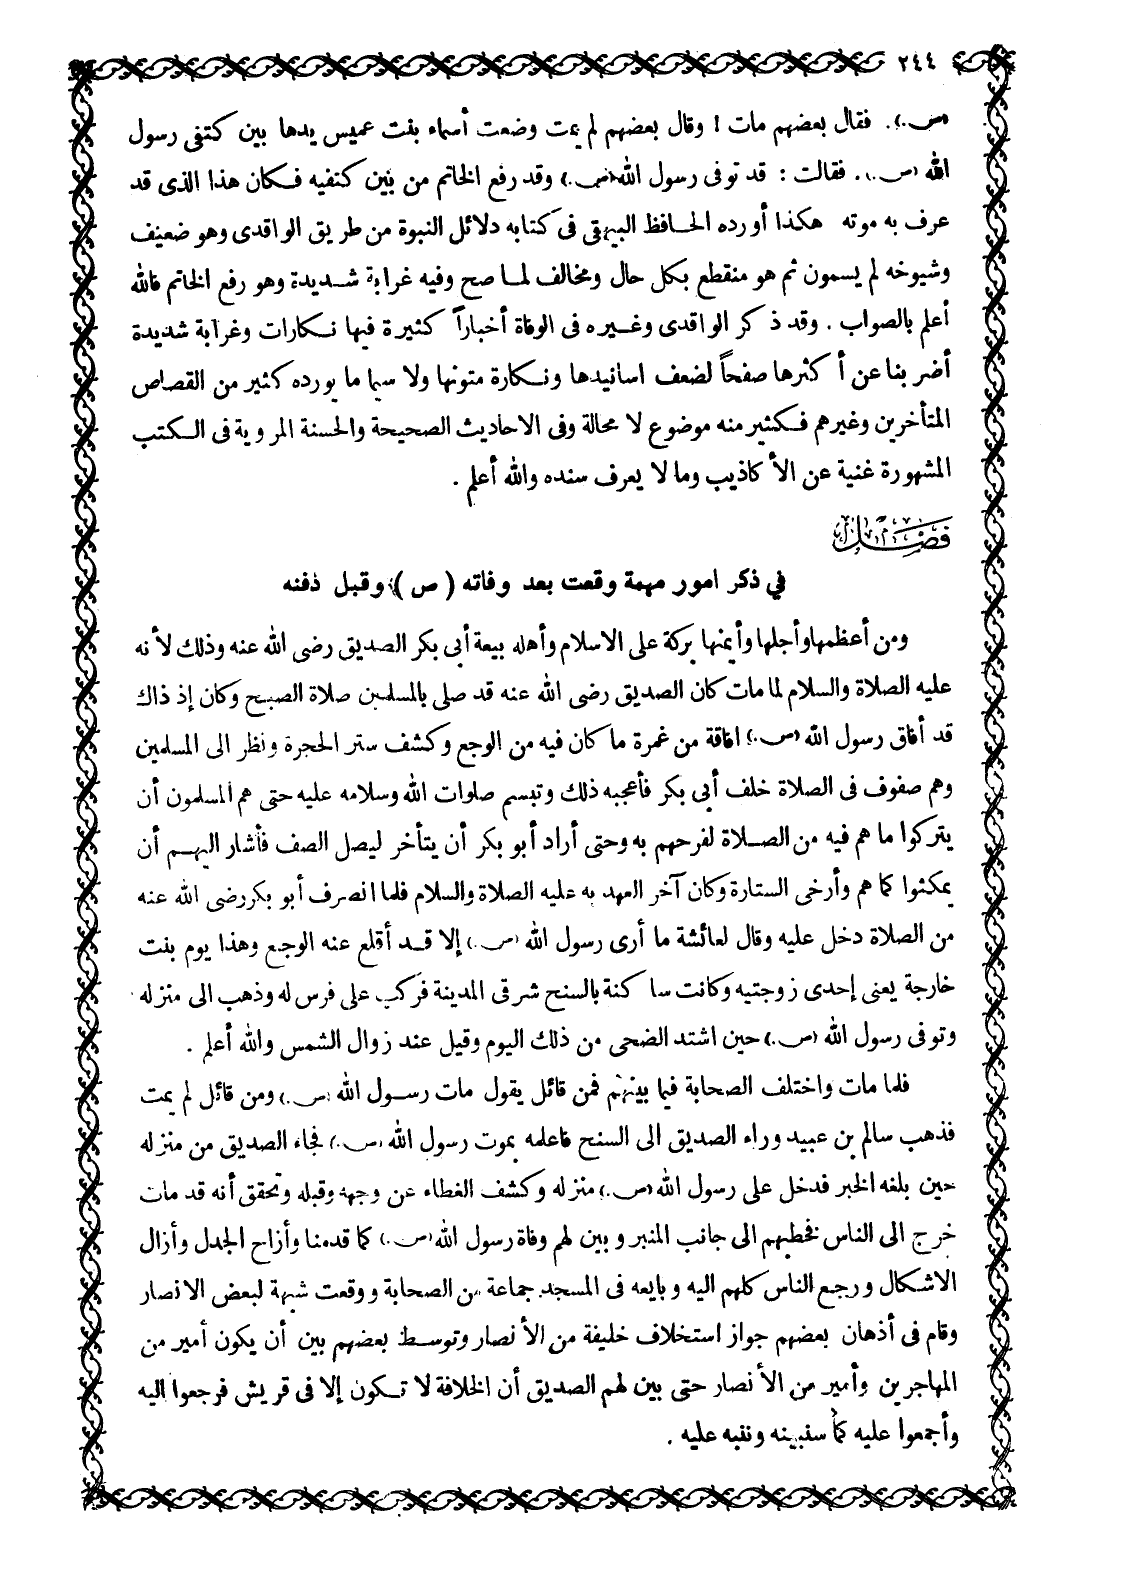 ٢٤٤
(ص.). فقال بعضهم مات ! وقال بعضهم لم يمت وضعت أسماء بنت عميس يدها بين كتفى رسول
الله (ص.). فقالت : قد توفى رسول الله (ص.) وقد رفع الخاتم من بين كتفيه فكان هذا الذى قد
عرف به موته هكذا أورده الحافظ البيهقى فى كتابه دلائل النبوة من طريق الواقدى وهو ضعيف
وشيوخه لم يسمون ثم هو منقطع بكل حال ومخالف لما صح وفيه غرابة شديدة وهو رفع الخاتم فالله
أعلم بالصواب . وقد ذكر الواقدى وغيره فى الوفاة أخباراً كثيرة فيها نكارات وغرابة شديدة
أضربنا عن أكثرها صفحاً لضعف اسانيدها ونكارة متونها ولا سيما ما يورده كثير من القصاص
المتأخرين وغيرهم فكثير منه موضوع لا محالة وفى الاحاديث الصحيحة والحسنة المروية فى الكتب
المشهورة غنية عن الأكاذيب وما لا يعرف سنده والله أعلم .
فصل
في ذكر امور مهمة وقعت بعد وفاته ( ص ) وقبل دفنه
ومن أعظمها وأجلها وأيمنها بركة على الاسلام وأهله بيعة أبى بكر الصديق رضى الله عنه وذلك لأنه
عليه الصلاة والسلام لما مات كان الصديق رضى الله عنه قد صلى بالمسلمين صلاة الصبح وكان إذ ذاك
قد أفاق رسول الله (ص.) افاقة من غمرة ما كان فيه من الوجع وكشف ستر الحجرة ونظر الى المسلمين
وهم صفوف فى الصلاة خلف أبى بكر فأعجبه ذلك وتبسم صلوات الله وسلامه عليه حتى هم المسلمون أن
يتركوا ما هم فيه من الصلاة لفرحهم به وحتى أراد أبو بكر أن يتأخر ليصل الصف فأشار اليهم أن
يمكثوا كما هم وأرخى الستارة وكان آخر العهد به عليه الصلاة والسلام فلما انصرف أبو بكر رضى الله عنه
من الصلاة دخل عليه وقال لعائشة ما أرى رسول الله (ص.) إلا قد أقلع عنه الوجع وهذا يوم بنت
خارجة يعنى إحدى زوجتيه وكانت ساكنة بالسنح شرقى المدينة فركب على فرس له وذهب الى منزله
وتوفى رسول الله (ص.) حين اشتد الضحى من ذلك اليوم وقيل عند زوال الشمس والله أعلم .
فلما مات واختلف الصحابة فيما بينهم فمن قائل يقول مات رسول الله (ص.) ومن قائل لم يمت
فذهب سالم بن عبيد وراء الصديق الى السنح فاعلمه بموت رسول الله (ص.) فجاء الصديق من منزله
حين بلغه الخبر فدخل على رسول الله (ص.) منزله وكشف الغطاء عن وجهه وقبله وتحقق أنه قد مات
خرج الى الناس فخطبهم الى جانب المنبر وبين لهم وفاة رسول الله (ص.) كما قدمنا وأزاح الجدل وأزال
الاشكال ورجع الناس كلهم اليه وبايعه فى المسجد جماعة من الصحابة ووقعت شبهة لبعض الانصار
وقام فى أذهان بعضهم جواز استخلاف خليفة من الأنصار وتوسط بعضهم بين أن يكون أمير من
المهاجرين وأمير من الأنصار حتى بين لهم الصديق أن الخلافة لا تكون إلا فى قريش فرجعوا اليه
وأجمعوا عليه كما سنبينه وننبه عليه .